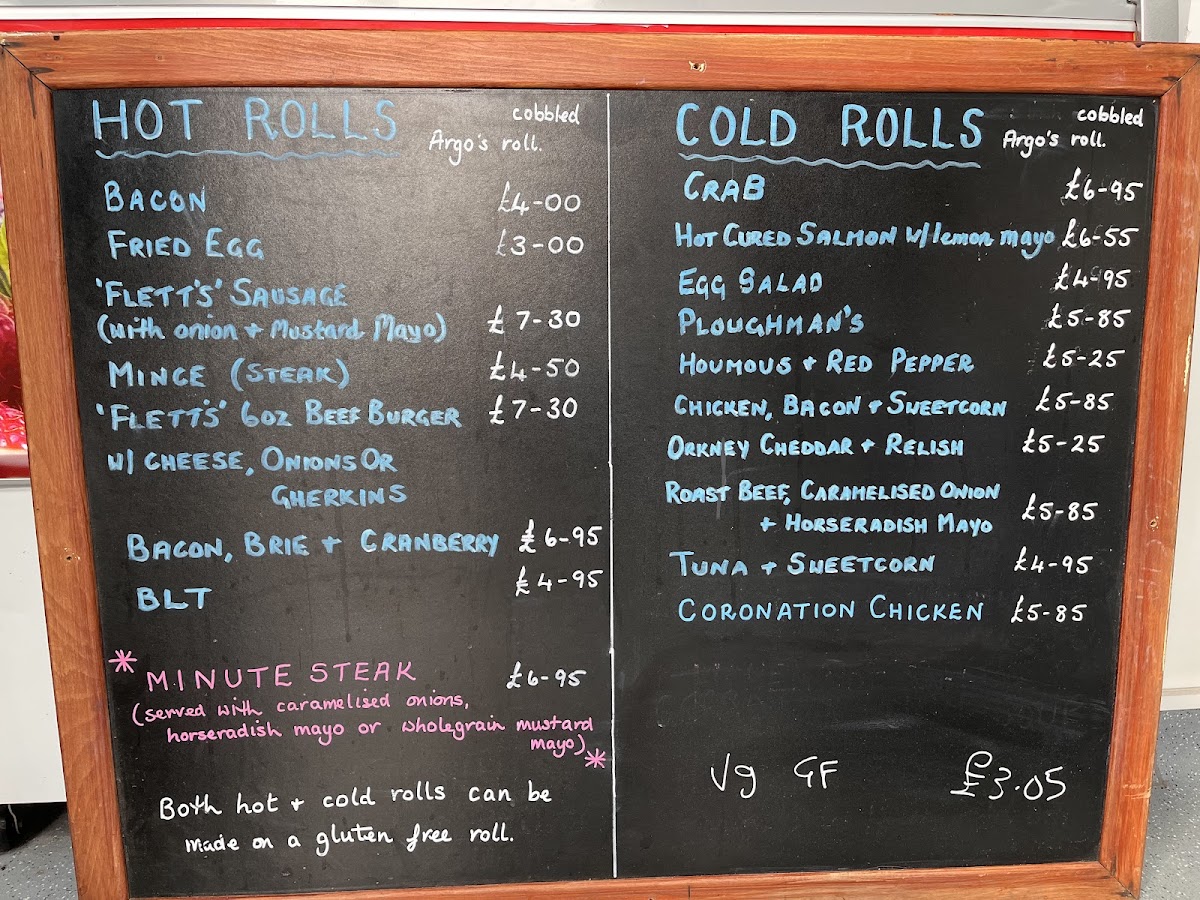 HOT ROLLS
cobbled
Argo's roll.
BACON £4-00
FRIED EGG £3-00
'FLETT'S' SAUSAGE
(with onion + Mustard Mayo) £7-30
MINCE (STEAK) £4-50
'FLETT'S' 6oz BEEF BURGER £7-30
W/ CHEESE, ONIONS OR
GHERKINS
BACON, BRIE + CRANBERRY £6-95
BLT £4-95
* MINUTE STEAK £6-95
(served with caramelised onions,
horseradish mayo or wholegrain mustard
mayo) *
Both hot + cold rolls can be
made on a gluten free roll.
COLD ROLLS
cobbled
Argo's roll.
CRAB £6-95
HOT CURED SALMON W/ lemon mayo £6-55
EGG SALAD £4-95
PLOUGHMAN'S £5-85
HOUMOUS + RED PEPPER £5-25
CHICKEN, BACON + SWEETCORN £5-85
ORKNEY CHEDDAR + RELISH £5-25
ROAST BEEF, CARAMELISED ONION
+ HORSERADISH MAYO £5-85
TUNA + SWEETCORN £4-95
CORONATION CHICKEN £5-85
Vg GF £3.05